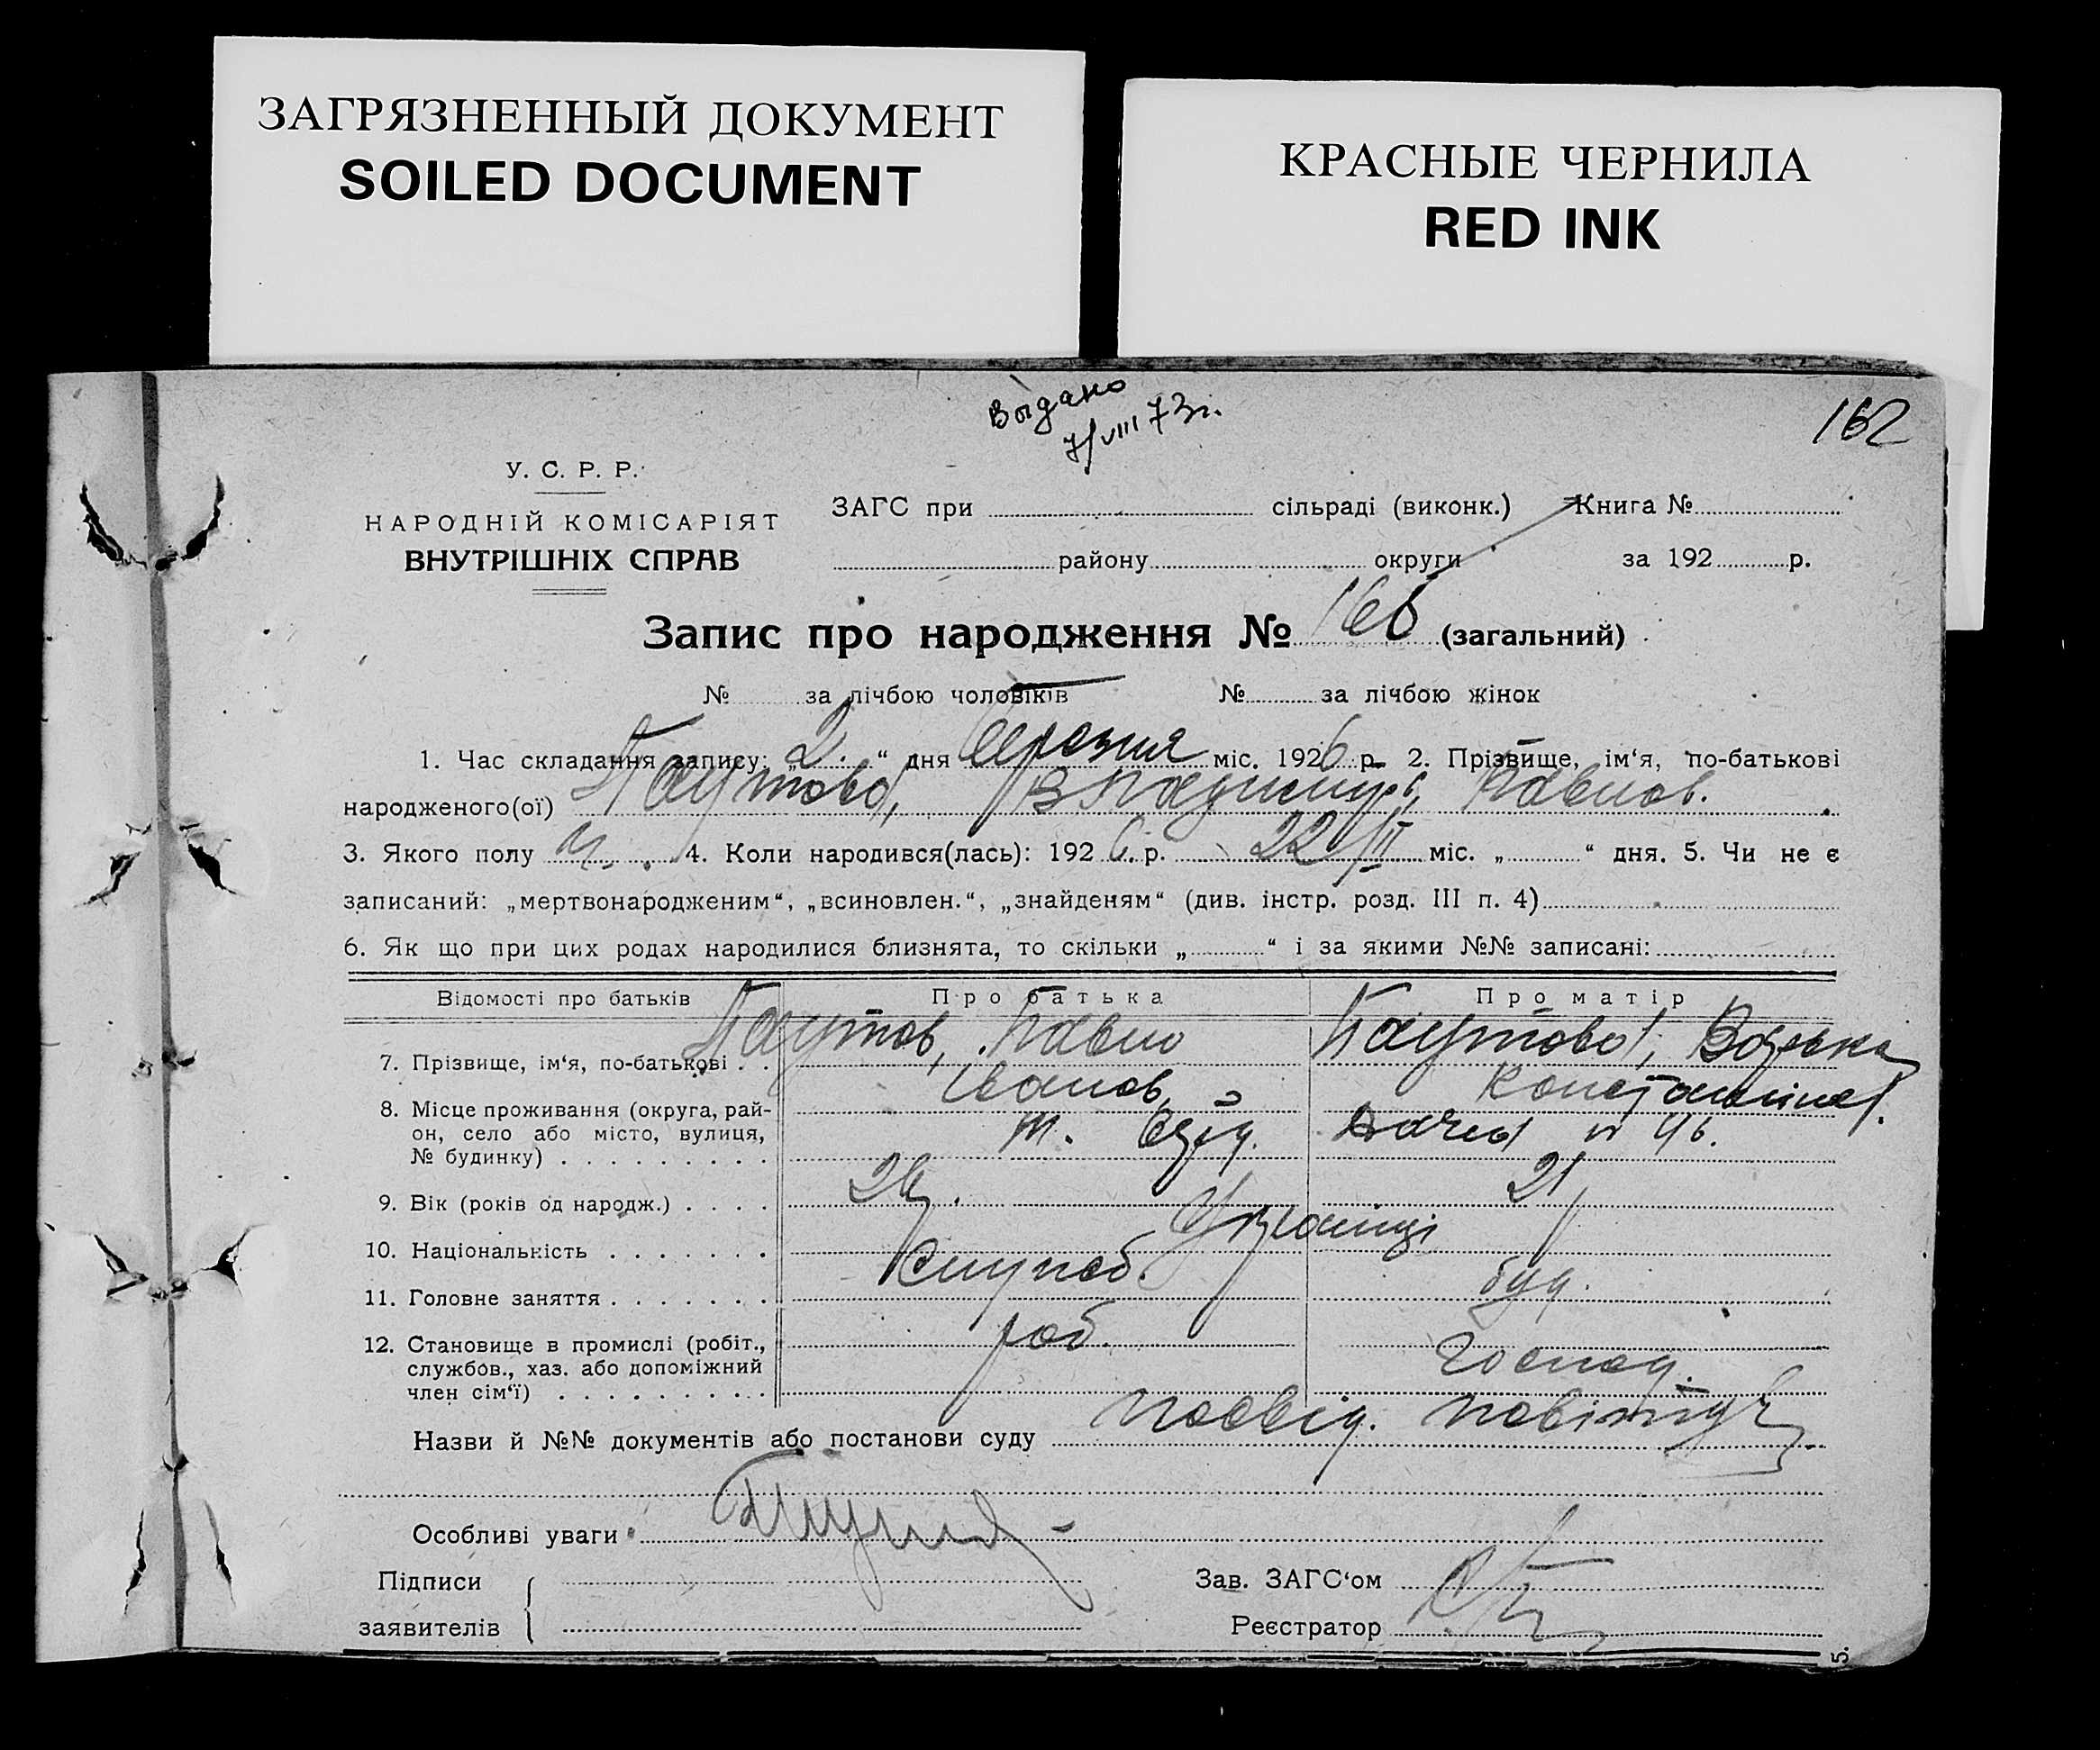 ЗАГРЯЗНЕННЫЙ ДОКУМЕНТ
SOILED DOCUMENT
КРАСНЫЕ ЧЕРНИЛА
RED INK
Выдано
7/VIII 73г.
162
У. С. Р. Р.
НАРОДНІЙ КОМІСАРІЯТ
ВНУТРІШНІХ СПРАВ
ЗАГС при сільраді (виконк.) Книга №
району округи за 192 р.
Запис про народження № (загальний)
№ за лічбою чоловіків № за лічбою жінок
1. Час складання запису: „2“ дня березня міс. 1926 р. 2. Прізвище, ім‘я, по-батькові
народженого(ої) Павлов.
3. Якого полу ч. 4. Коли народився(лась): 1926 р. 22/II міс. „ “ дня. 5. Чи не є
записаний: „мертвонародженим“, „всиновлен.“, „знайденям“ (див. інстр. розд. III п. 4)
6. Як що при цих родах народилися близнята, то скільки „ “ і за якими №№ записані:
Відомості про батьків Про батька Про матір
7. Прізвище, ім‘я, по-батькові . . Паутов, Павло Паутова,
Іванов,
8. Місце проживання (округа, рай-
он, село або місто, вулиця,
№ будинку) . . . . . . . . .
9. Вік (років од народж.) . . . . 21
10. Національність . . . . . . .
11. Головне заняття . . . . . . . буд.
12. Становище в промислі (робіт., роб. господ.
службов., хаз. або допоміжний
член сім‘ї) . . . . . . . . .
Назви й №№ документів або постанови суду посвід.
Особливі уваги
Підписи Зав. ЗАГС‘ом
заявителів Реєстратор
5.